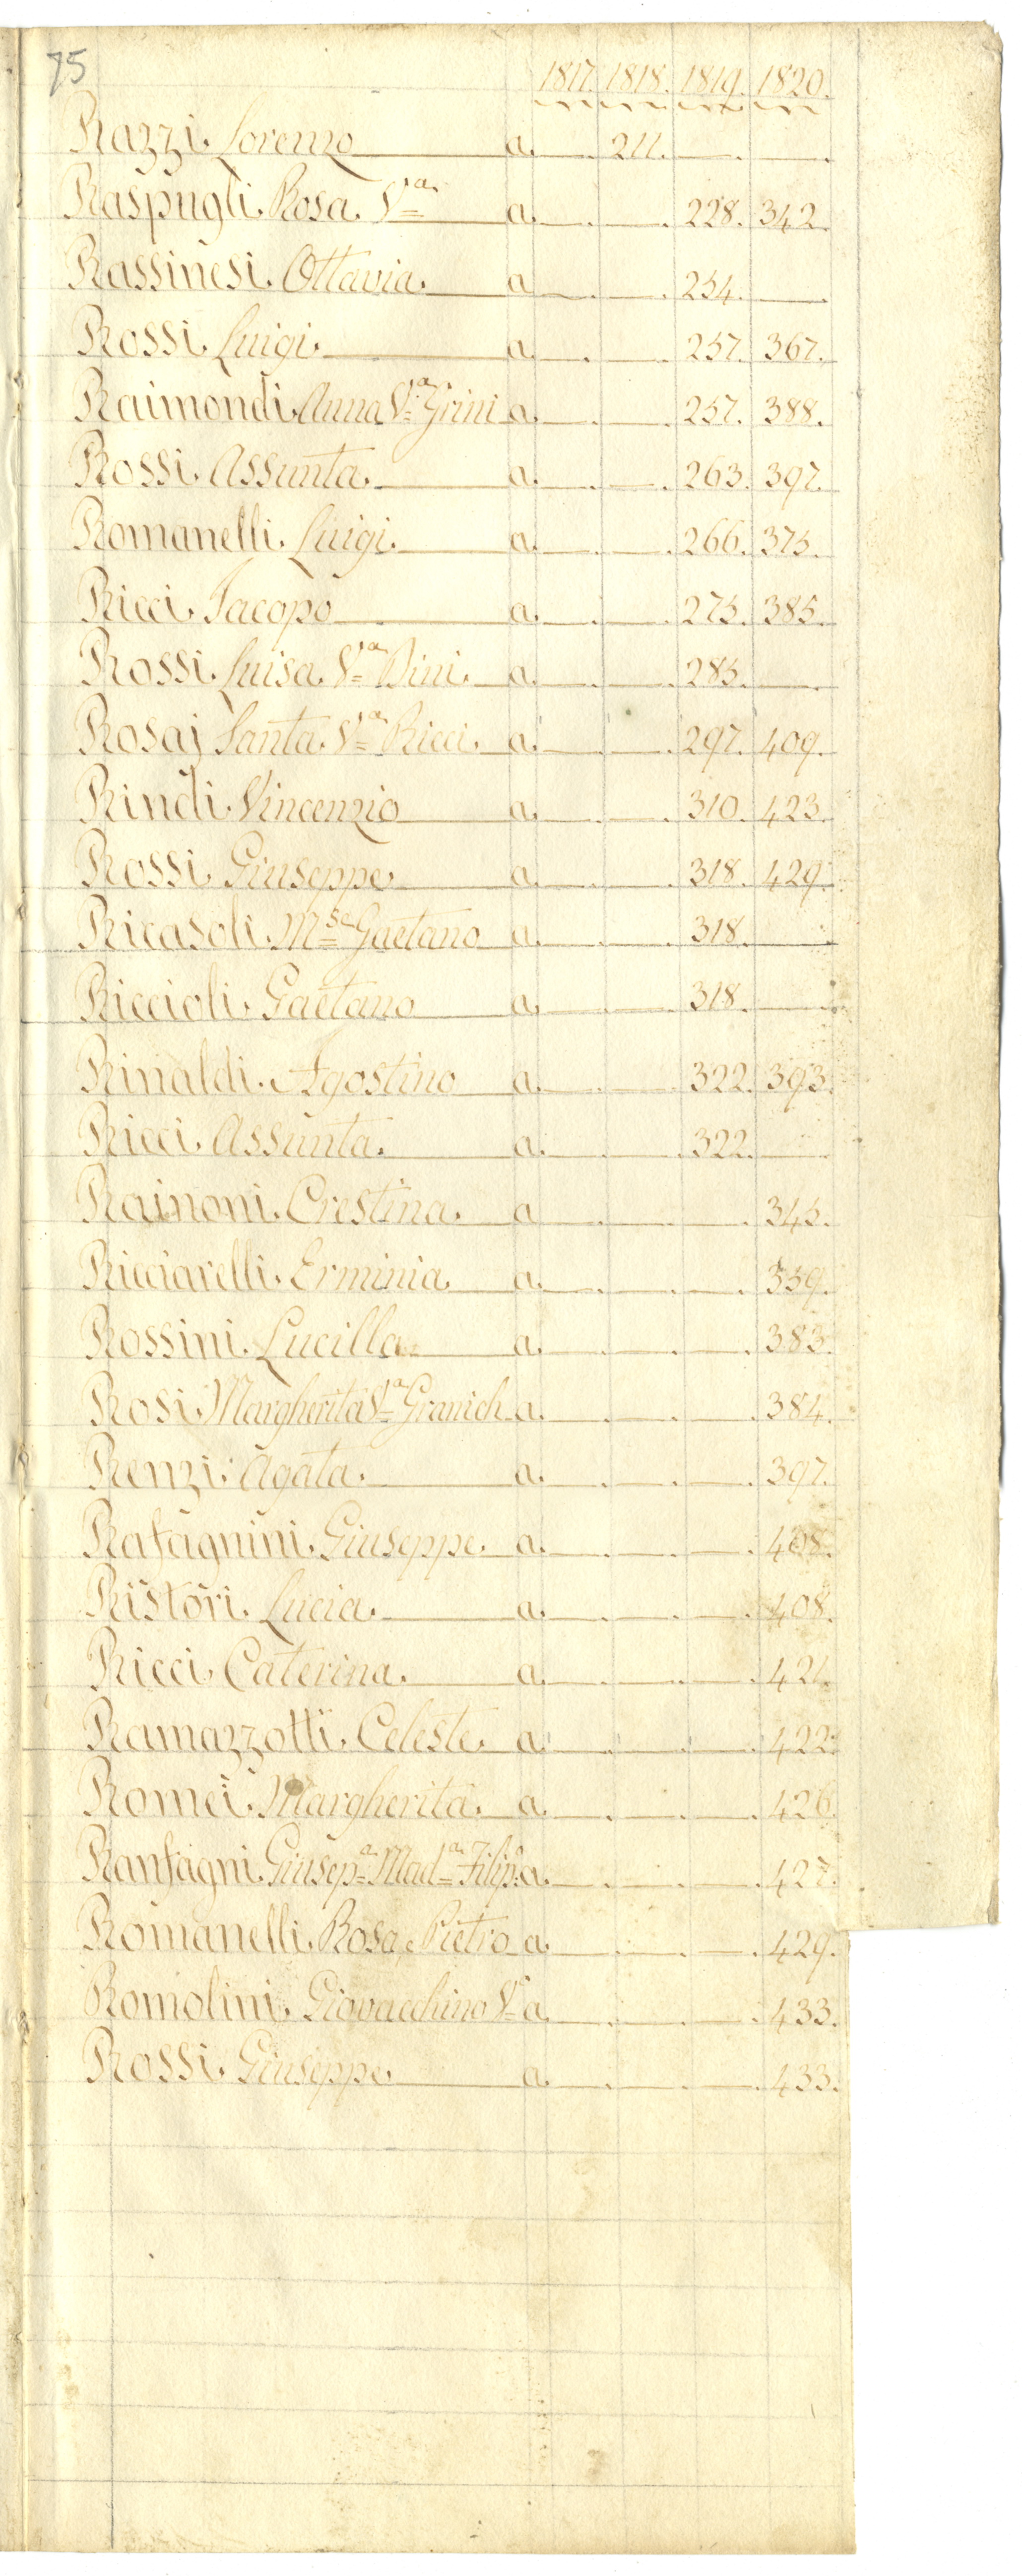 75
1817. 1818. 1819. 1820.
Razzi. Lorenzo a. 211.
Raspugli. Rosa. V.a a. 228. 342.
Rassinesi. Ottavia. a. 254.
Rossi. Luigi. a. 257. 367.
Raimondi. Anna V.a Grini a. 257. 388.
Rossi. Assunta. a. 263. 397.
Romanelli. Luigi. a. 266. 375.
Ricci. Jacopo a. 275. 385.
Rossi. Luisa. V.a Dini. a. 285.
Rosaj Santa. V.a Ricci. a. 297. 409.
Rindi. Vincenzio a. 310. 423.
Rossi. Giuseppe. a. 318. 429.
Ricasoli. M.se Gaetano a. 318.
Riccioli. Gaetano a. 318.
Rinaldi. Agostino a. 322. 393.
Ricci. Assunta. a. 322.
Rainoni. Crestina. a. 345.
Ricciarelli. Erminia. a. 359.
Rossini. Lucilla. a. 383.
Rosi. Margherita V.a Granich a. 384.
Renzi. Agata. a. 397.
Rafagnini. Giuseppe. a. 408.
Ristori. Lucia. a. 408.
Ricci. Caterina. a. 421.
Ramazzotti. Celeste. a. 422.
Romei. Margherita. a. 426.
Ranfagni. Giusep.a Mad.a Filip. a. 427.
Romanelli. Rosa, e Pietro a. 429.
Romolini. Giovacchino a. 433.
Rossi. Giuseppe a. 433.